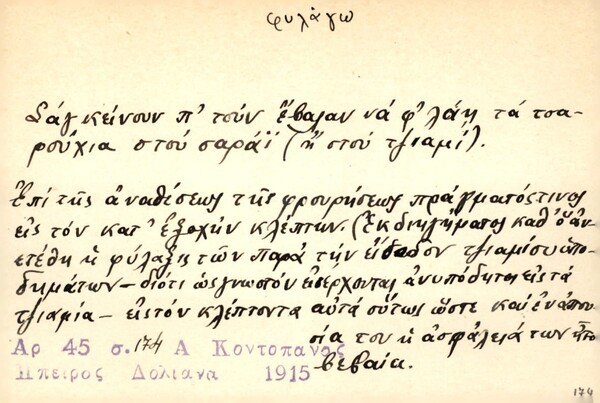 φυλάγω
Σάγ κείνουν π' τούν ἔβαλαν νά φ'λάῃ τά τσα-
ρούχια στού σαράϊ (ἤ στού τζιαμί).
Ἐπί τῆς ἀναθέσεως τῆς φρουρήσεως πράγματός τινος
εἰς τόν κατ' ἐξοχήν κλέπτην. (Ἐκ διηγήματος καθ' ὅ ἀν-
ετέθη ἡ φύλαξις τῶν παρά τήν εἴσοδον τζιαμίου ὑπο-
δημάτων – διότι ὡς γνωστόν εἰσέρχονται ἀνυπόδητοι εἰς τά
τζιαμία – εἰς τόν κλέπτοντα αὐτά οὕτως ὥστε καί ἐν ἀπου-
σίᾳ του ἡ ἀσφάλειά των ἦτο
βεβαία.
Αρ 45 σ. 174 Α Κοντοπανος
Ηπειρος Δολιανα 1915
174